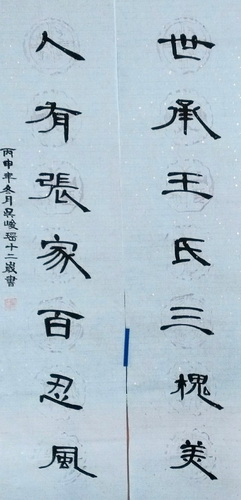 世承王氏三槐美
人有張家百忍風
丙申年冬月吳峻瑶十二歲書